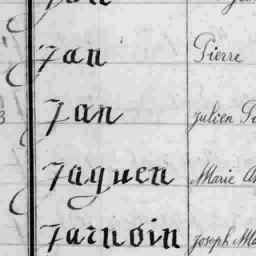 Jan Pierre
Jan Julien
Jaguen Marie
Jarnoin Joseph